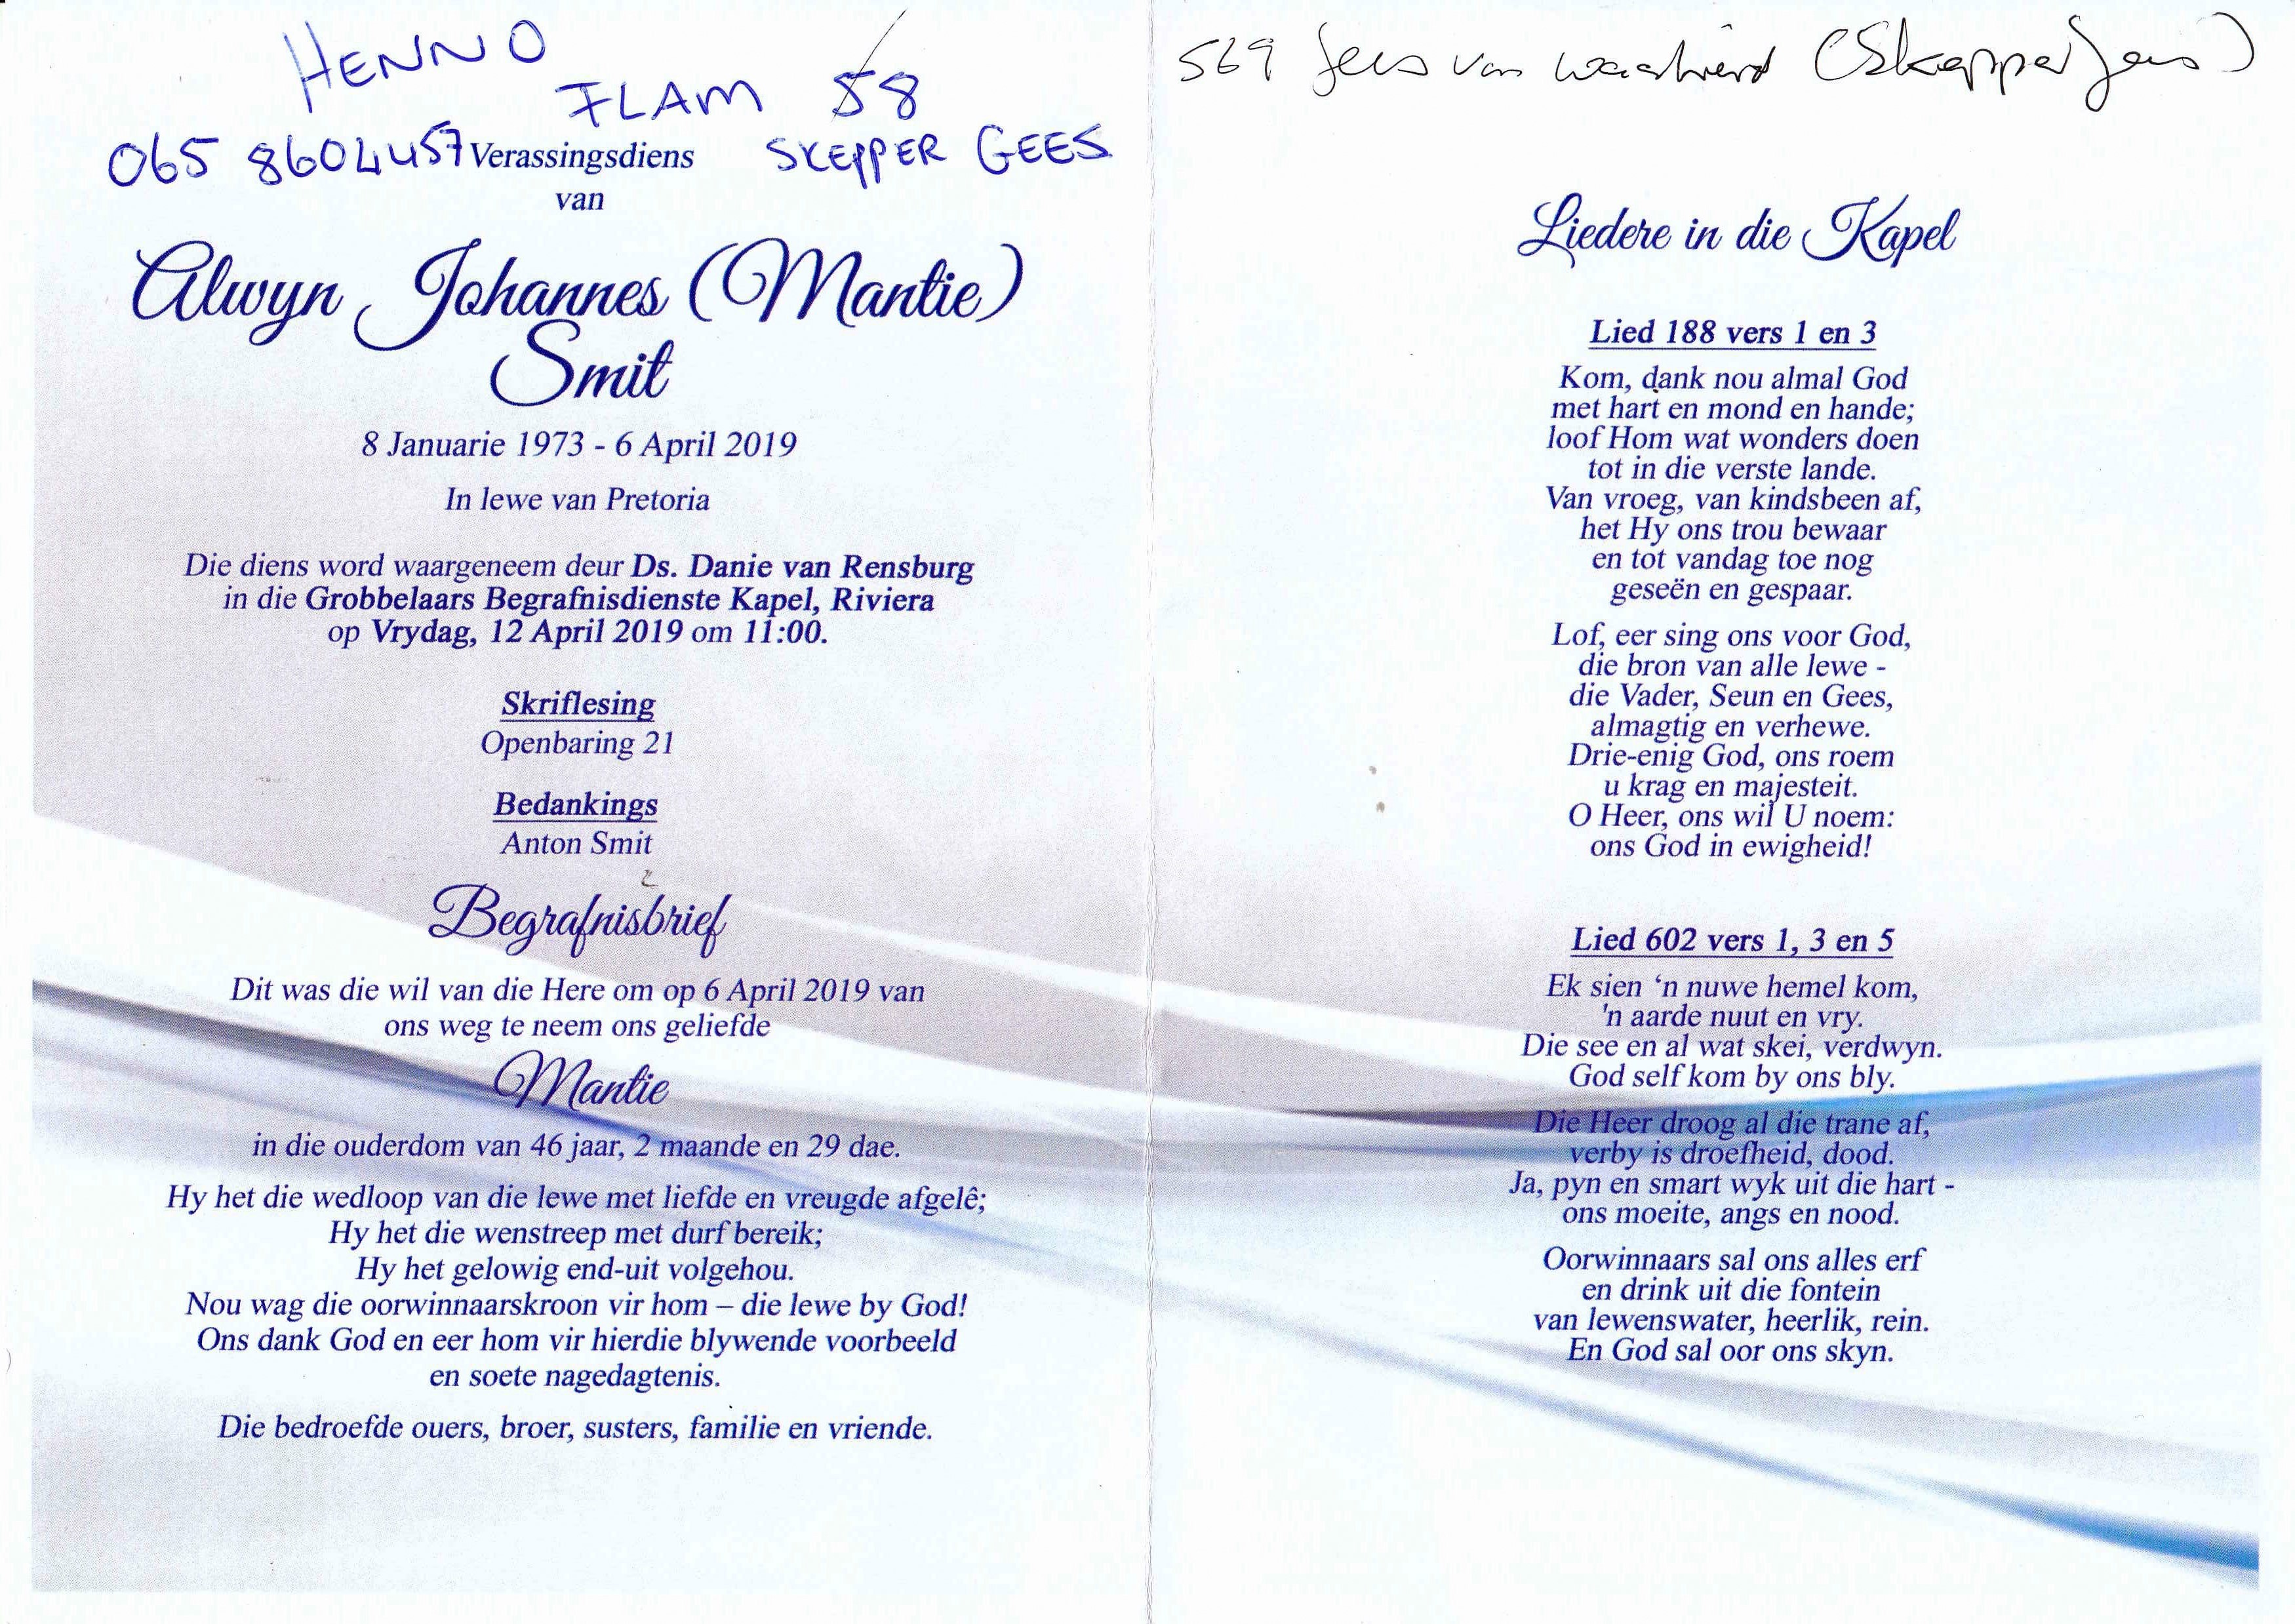 HENNO
FLAM 58
065 8604457
SKEPPER GEES
Verassingsdiens
van
Alwyn Johannes (Mantie)
Smit
8 Januarie 1973 - 6 April 2019
In lewe van Pretoria
Die diens word waargeneem deur Ds. Danie van Rensburg
in die Grobbelaars Begrafnisdienste Kapel, Riviera
op Vrydag, 12 April 2019 om 11:00.
Skriflesing
Openbaring 21
Bedankings
Anton Smit
Begrafnisbrief
Dit was die wil van die Here om op 6 April 2019 van
ons weg te neem ons geliefde
Mantie
in die ouderdom van 46 jaar, 2 maande en 29 dae.
Hy het die wedloop van die lewe met liefde en vreugde afgelê;
Hy het die wenstreep met durf bereik;
Hy het gelowig end-uit volgehou.
Nou wag die oorwinnaarskroon vir hom – die lewe by God!
Ons dank God en eer hom vir hierdie blywende voorbeeld
en soete nagedagtenis.
Die bedroefde ouers, broer, susters, familie en vriende.
569 Gees van waarheid (Skepper Gees)
Liedere in die Kapel
Lied 188 vers 1 en 3
Kom, dank nou almal God
met hart en mond en hande;
loof Hom wat wonders doen
tot in die verste lande.
Van vroeg, van kindsbeen af,
het Hy ons trou bewaar
en tot vandag toe nog
geseën en gespaar.
Lof, eer sing ons voor God,
die bron van alle lewe -
die Vader, Seun en Gees,
almagtig en verhewe.
Drie-enig God, ons roem
u krag en majesteit.
O Heer, ons wil U noem:
ons God in ewigheid!
Lied 602 vers 1, 3 en 5
Ek sien ‘n nuwe hemel kom,
'n aarde nuut en vry.
Die see en al wat skei, verdwyn.
God self kom by ons bly.
Die Heer droog al die trane af,
verby is droefheid, dood.
Ja, pyn en smart wyk uit die hart -
ons moeite, angs en nood.
Oorwinnaars sal ons alles erf
en drink uit die fontein
van lewenswater, heerlik, rein.
En God sal oor ons skyn.